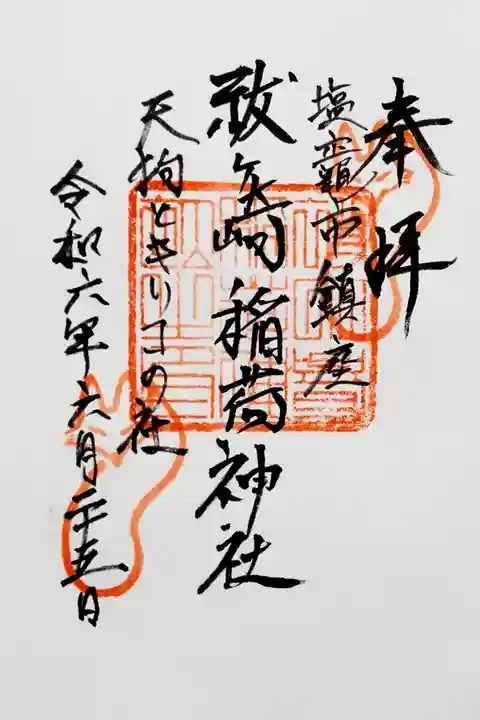 奉拝
塩竈市鎮座
祓ヶ崎稲荷神社
天狗ときリコの社
令和六年六月二十五日